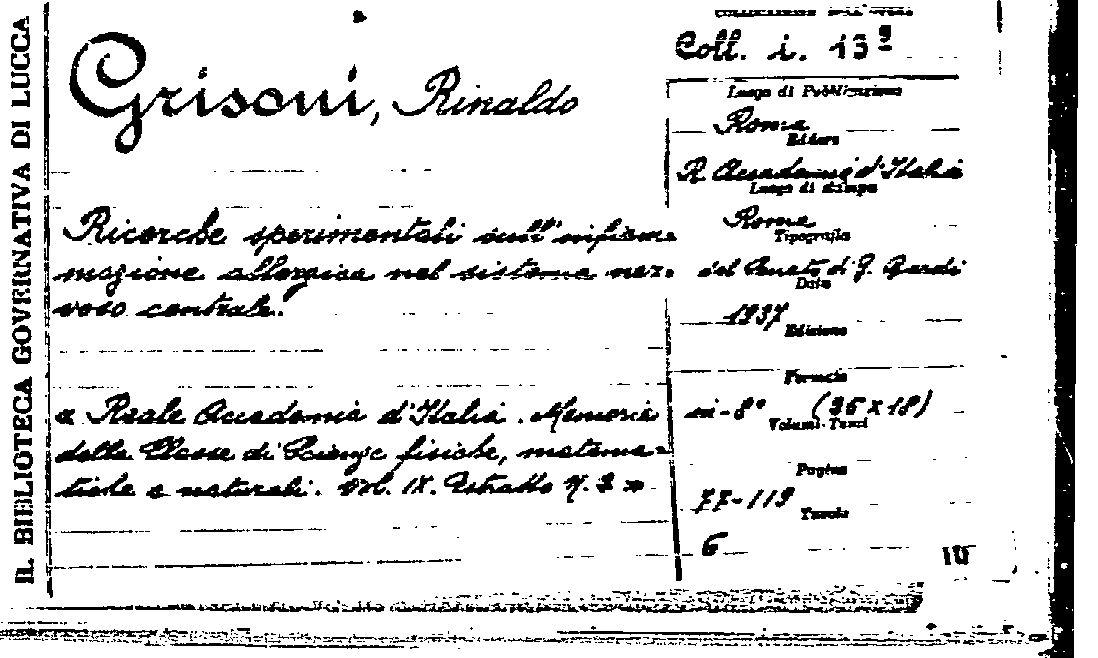 R. BIBLIOTECA GOVERNATIVA DI LUCCA
COLLOCAZIONE DELL'OPERA
Coll. i. 13
Grisoni, Rinaldo
Luogo di Pubblicazione
Roma
Editore
R. Accademia d'Italia
Luogo di stampa
Roma
Tipografia
del Senato di G. Bardi
Data
1937
Edizione
Formato
in-8° (26 x 18)
Volumi-Tomi
Pagine
77-119
Tavole
6
Ricerche sperimentali sull'infiam-
mazione allergica nel sistema ner-
voso centrale.
« Reale Accademia d'Italia. Memorie
della Classe di Scienze fisiche, matema-
tiche e naturali. Vol. IX. Estratto N. 3 »